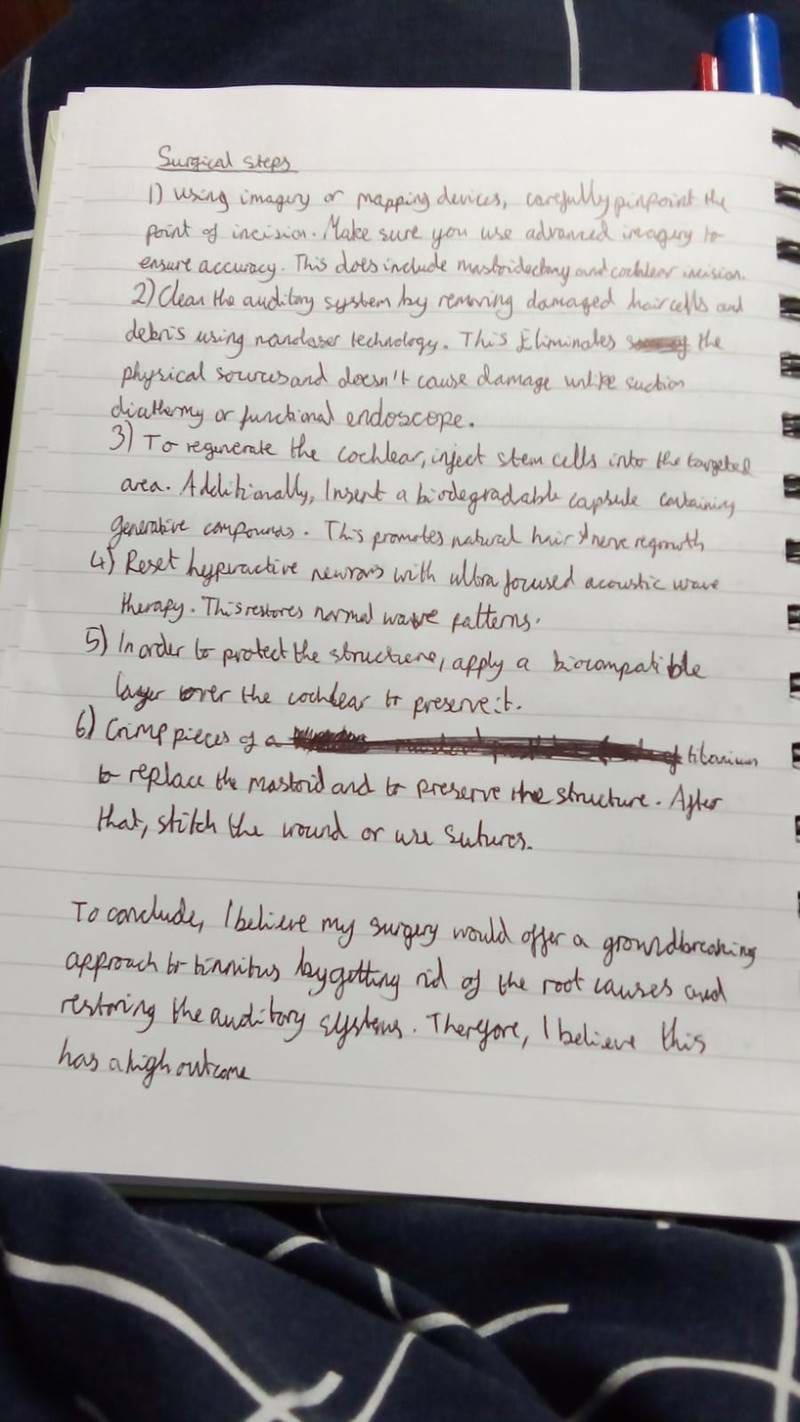 Surgical steps
1) Using imagery or mapping devices, carefully pinpoint the
point of incision. Make sure you use advanced imagery to
ensure accuracy. This does include mastoidectomy and cochlear incision.
2) Clean the auditory system by removing damaged hair cells and
debris using nanolaser technology. This Eliminates the
physical sources and doesn't cause damage unlike suction
diathermy or functional endoscope.
3) To regenerate the cochlear, inject stem cells into the targeted
area. Additionally, Insert a biodegradable capsule containing
generative compounds. This promotes natural hair & nerve regrowth
4) Reset hyperactive neurons with ultra focused acoustic wave
therapy. This restores normal wave patterns.
5) In order to protect the structure, apply a biocompatible
layer over the cochlear to preserve it.
6) Crimp pieces of a titanium
to replace the mastoid and to preserve the structure. After
that, stitch the wound or use sutures.
To conclude, I believe my surgery would offer a groundbreaking
approach to tinnitus by getting rid of the root causes and
restoring the auditory systems. Therefore, I believe this
has a high outcome